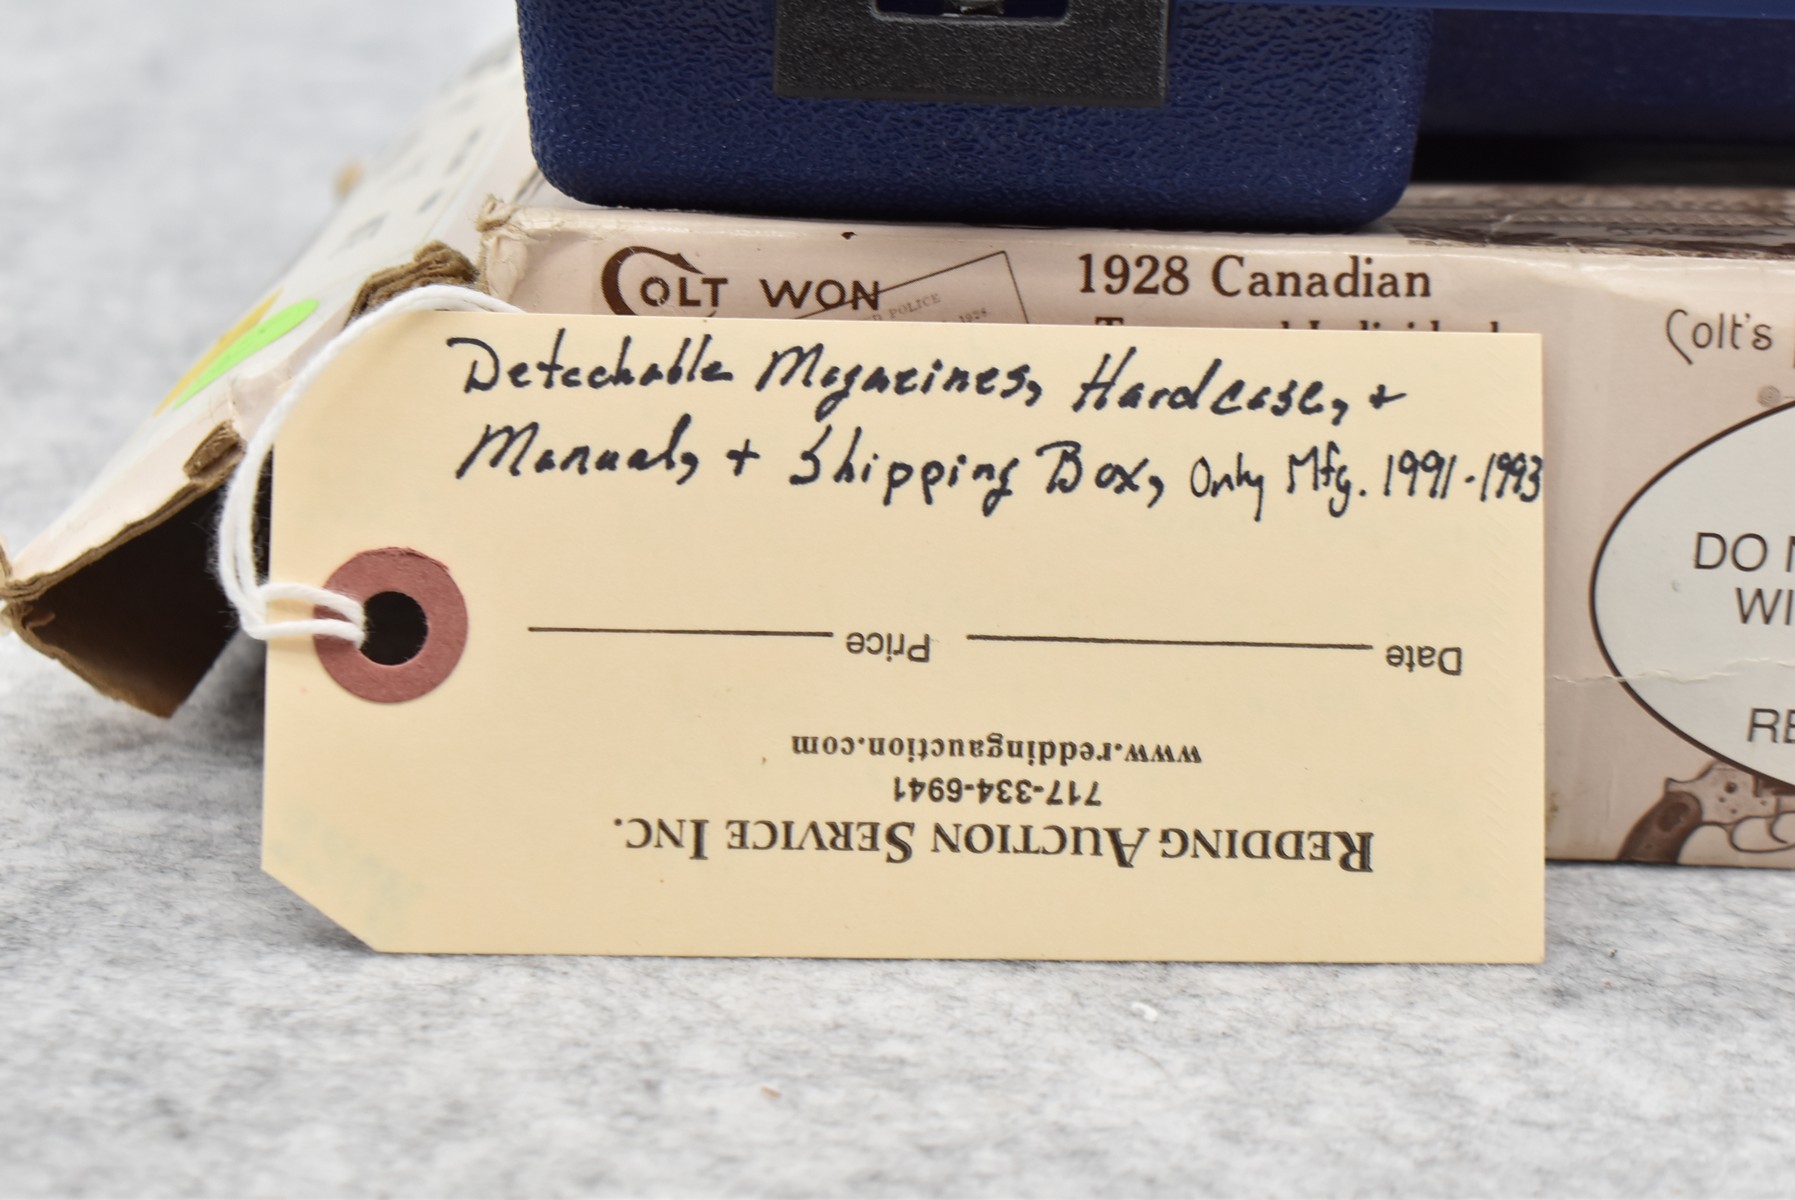 COLT WON
D POLICE
1928
1928 Canadian
Colt's
Detachable Magazines, Hardcase, +
Manual, + Shipping Box, Only Mfg. 1991-1993
DO
WI
RE
Date Price
www.reddingauction.com
717-334-6941
REDDING AUCTION SERVICE INC.